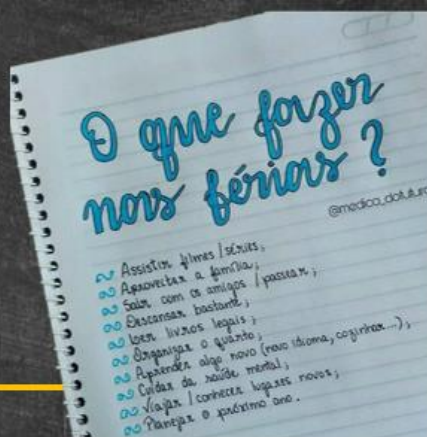 O que fazer
nas férias?
@medica_dofuturo
Assistir filmes / séries;
Aproveitar a família;
Sair com os amigos / passear;
Descansar bastante;
Ler livros legais;
Organizar o quarto;
Aprender algo novo (novo idioma, cozinhar...);
Cuidar da saúde mental;
Viajar / conhecer lugares novos;
Planejar o próximo ano.